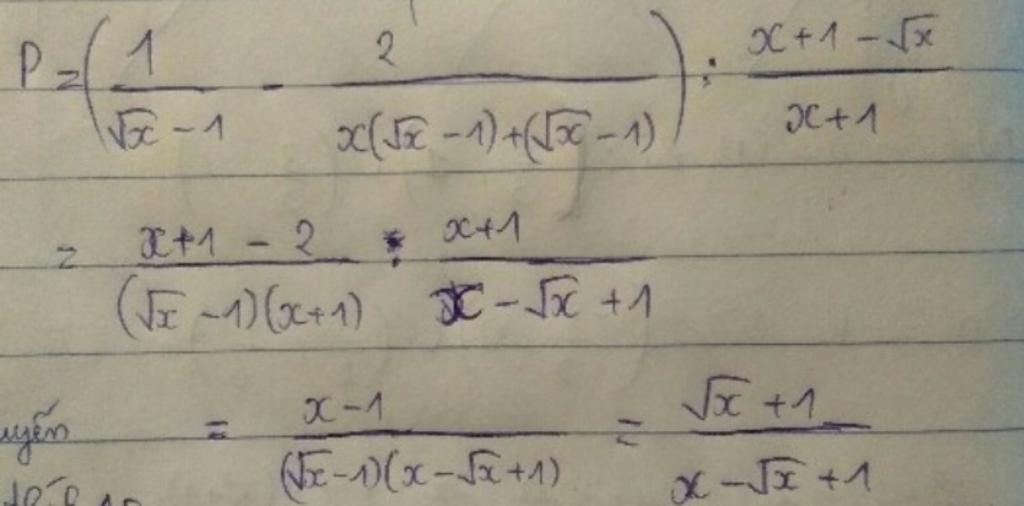 P = (1/(√x - 1) - 2/(x(√x - 1)+(√x - 1))) : (x+1-√x)/(x+1)
= (x+1-2)/((√x-1)(x+1)) : (x+1)/(x-√x+1)
uyến = (x-1)/((√x-1)(x-√x+1)) = (√x+1)/(x-√x+1)